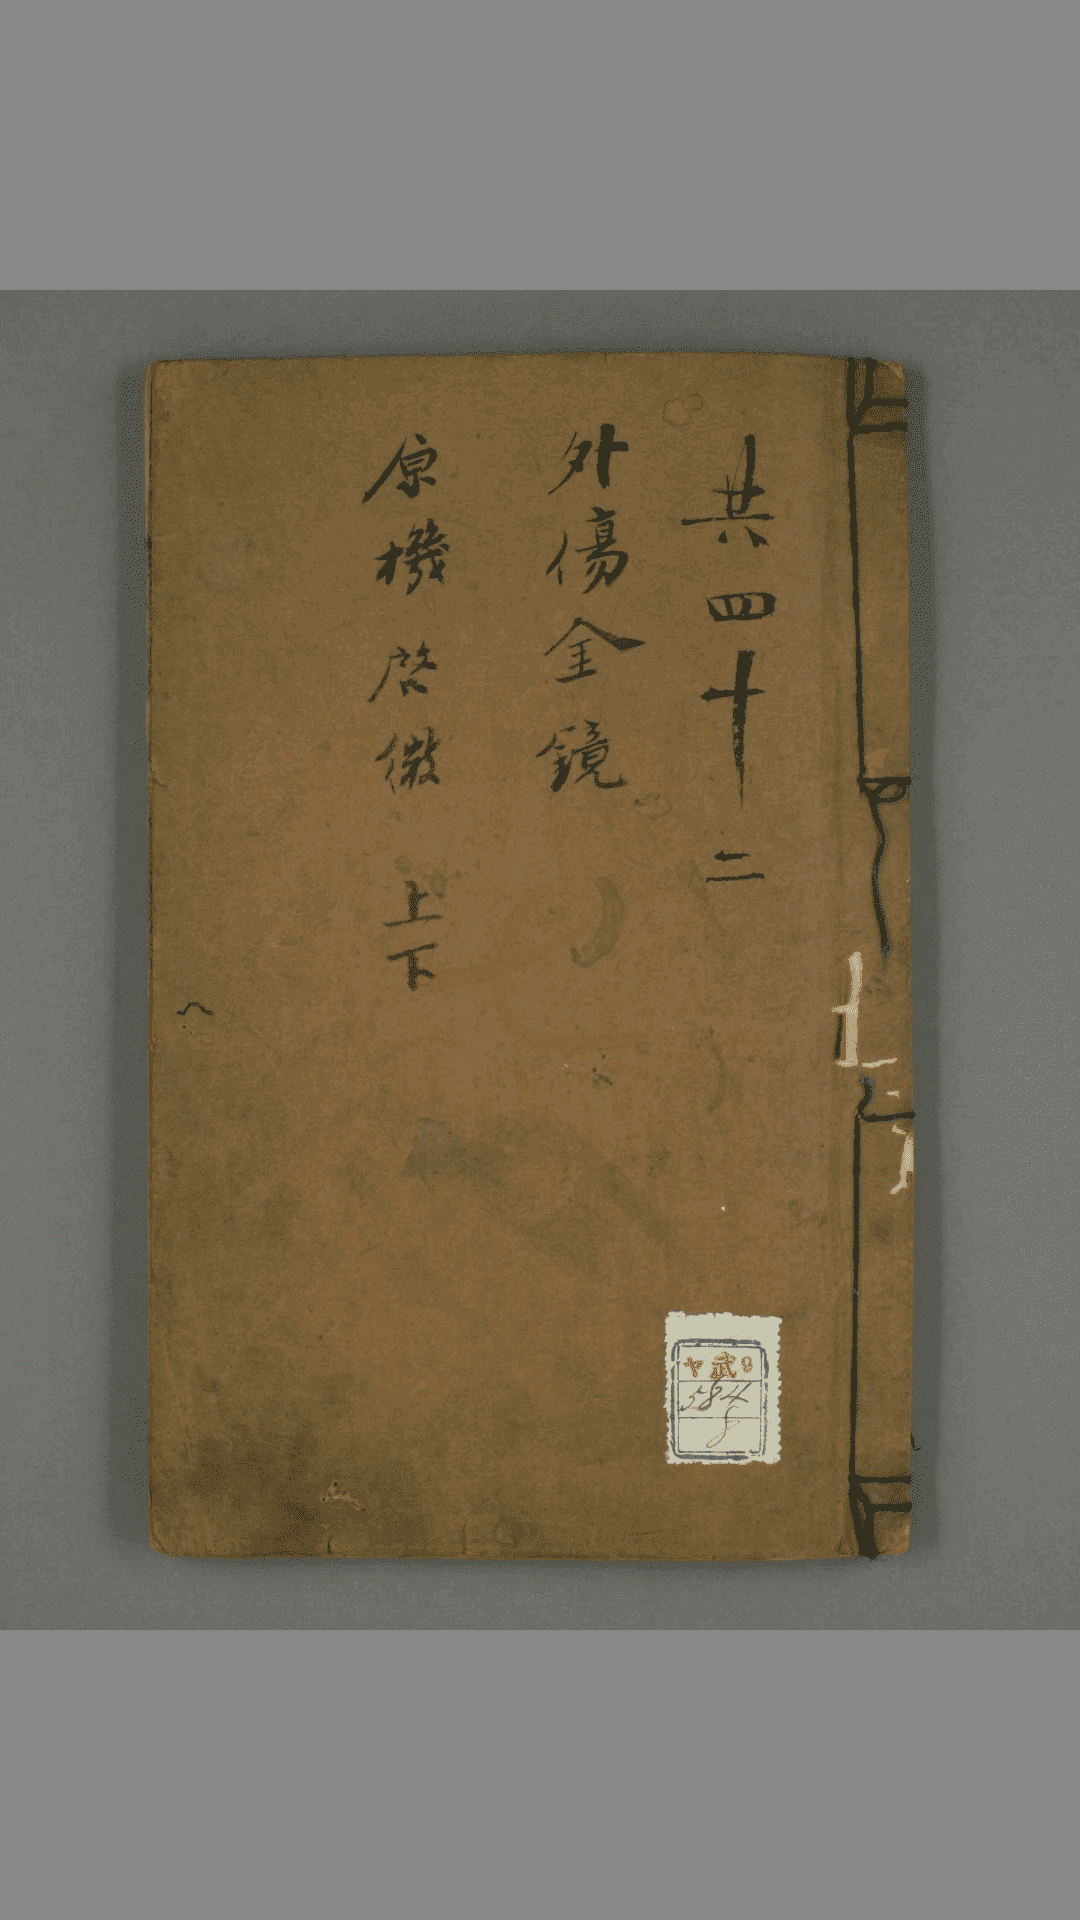 共四十二
外傷金鏡
原機啓微 上下
ヤ武9
584
8